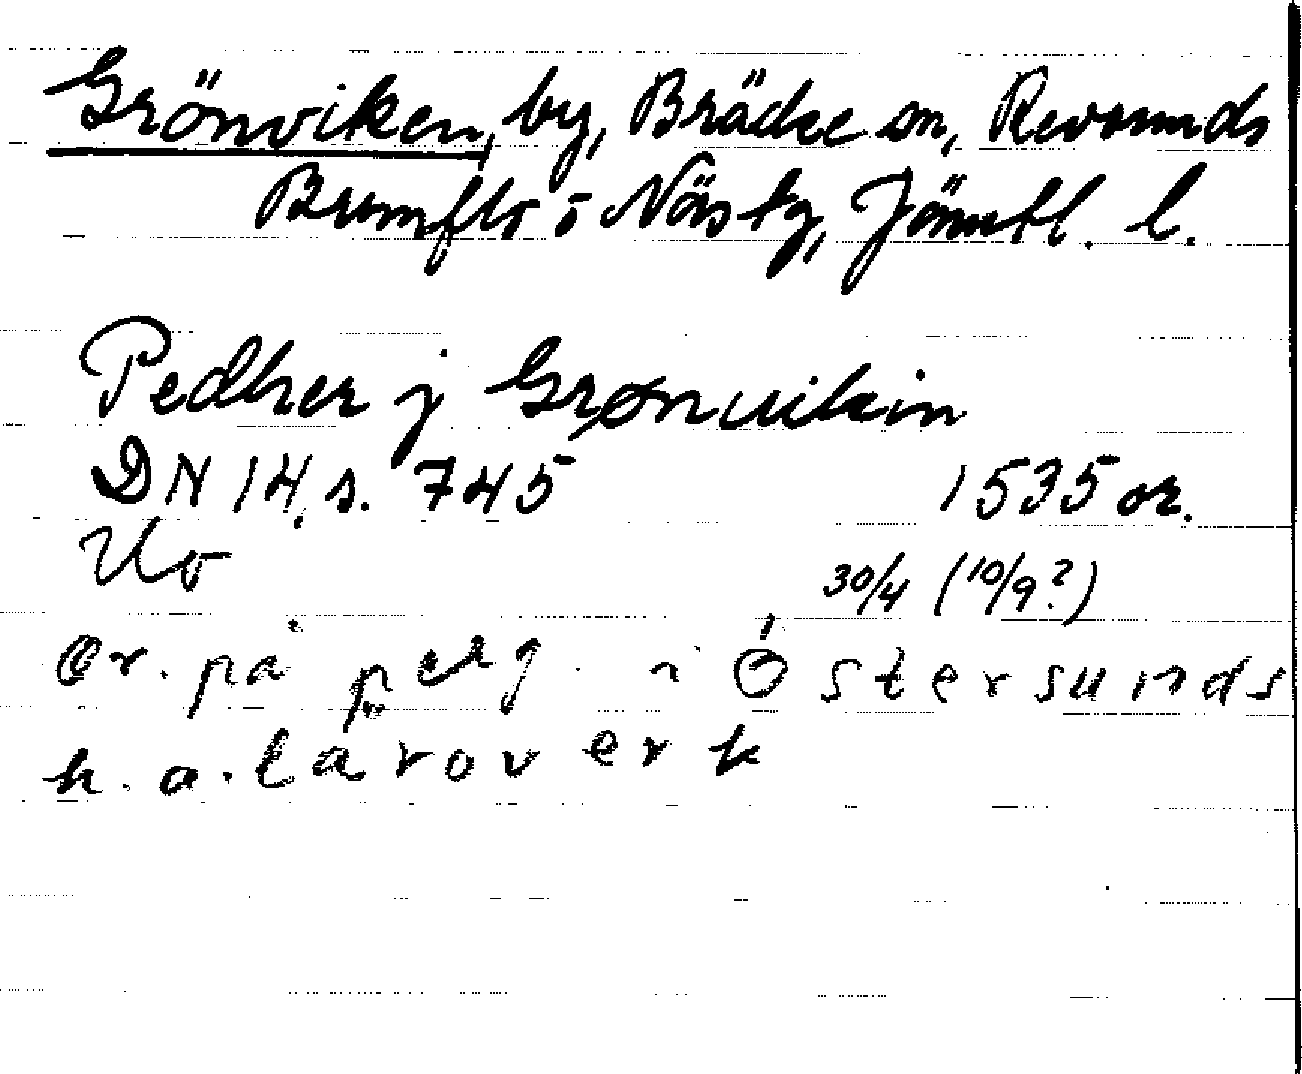 Grönviken, by, Bräcke sn, Revsunds
Brunflo o Näs tg, Jämtl. l.
Pedher j Grønuikin
DN 14, s. 745 1535 or.
Uo 30/4 (10/9?)
Or. på perg. i Östersunds
h. a. läroverk